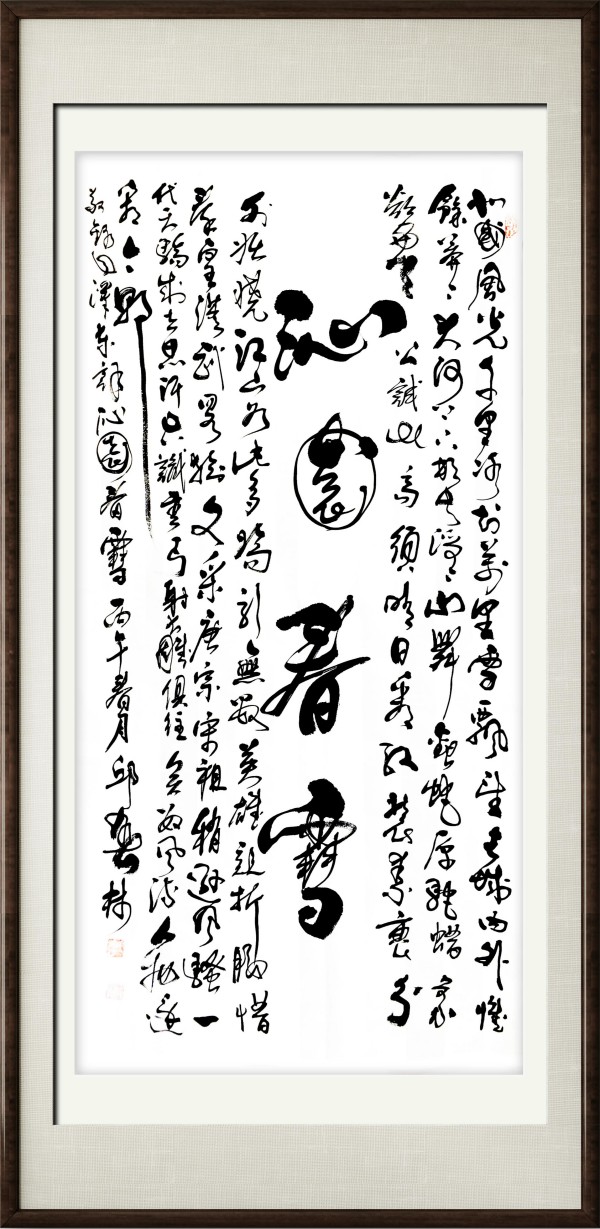 北國風光千里冰封萬里雪飄望長城內外惟
餘莽莽大河上下頓失滔滔山舞銀蛇原馳蠟象
欲與天公試比高須晴日看紅裝素裹分
沁園春雪
外妖嬈江山如此多嬌引無數英雄競折腰惜
秦皇漢武略輸文采唐宗宋祖稍遜風騷一
代天驕成吉思汗只識彎弓射大雕俱往矣數風流人物還
看今朝
敬錄毛澤東詞沁園春雪丙午春月邱林